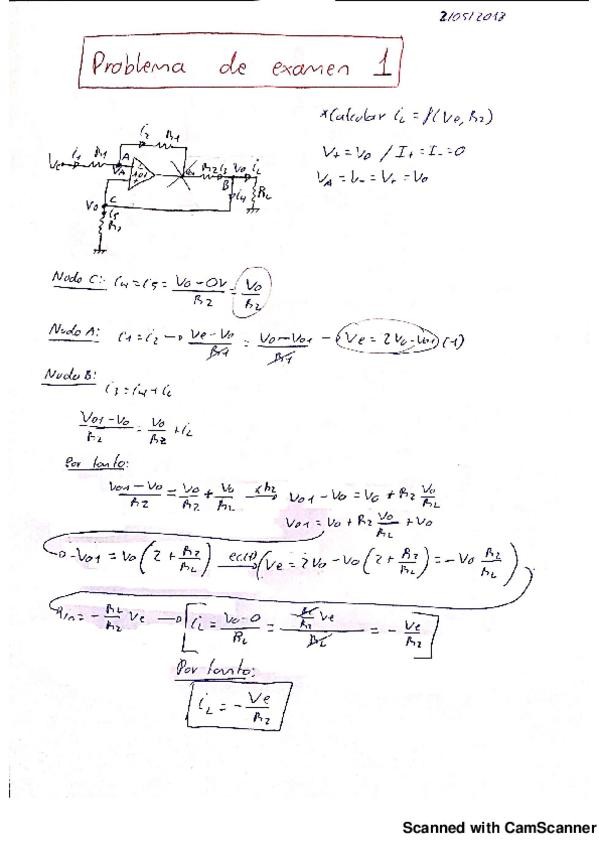 2/05/2013
Problema de examen 1
*Calcular iL = f(Ve, R2)
V+ = V0 / I+ = I- = 0
VA = V- = V+ = V0
i2 R1
Ve i1 R1 A R2 i3 V0 iL
VA B i4 RL
V0 C
i5
Nudo C: i4 = i5 = V0 - 0V / R2 = V0 / R2
Nudo A: i1 = i2 → Ve - V0 / R1 = V0 - V01 / R1 → Ve = 2V0 - V01 (1)
Nudo B:
i3 = i4 + iL
V01 - V0 / R2 = V0 / R2 + iL
Por tanto:
V01 - V0 / R2 = V0 / R2 + V0 / RL xR2→ V01 - V0 = V0 + R2 V0 / RL
V01 = V0 + R2 V0 / RL + V0
→ V01 = V0 (2 + R2 / RL) ec.(1)→ (Ve = 2V0 - V0 (2 + R2 / RL) = -V0 R2 / RL)
= - RL / R2 Ve → [iL = V0 - 0 / RL = RL / R2 Ve / RL = - Ve / R2]
Por tanto:
iL = - Ve / R2
Scanned with CamScanner